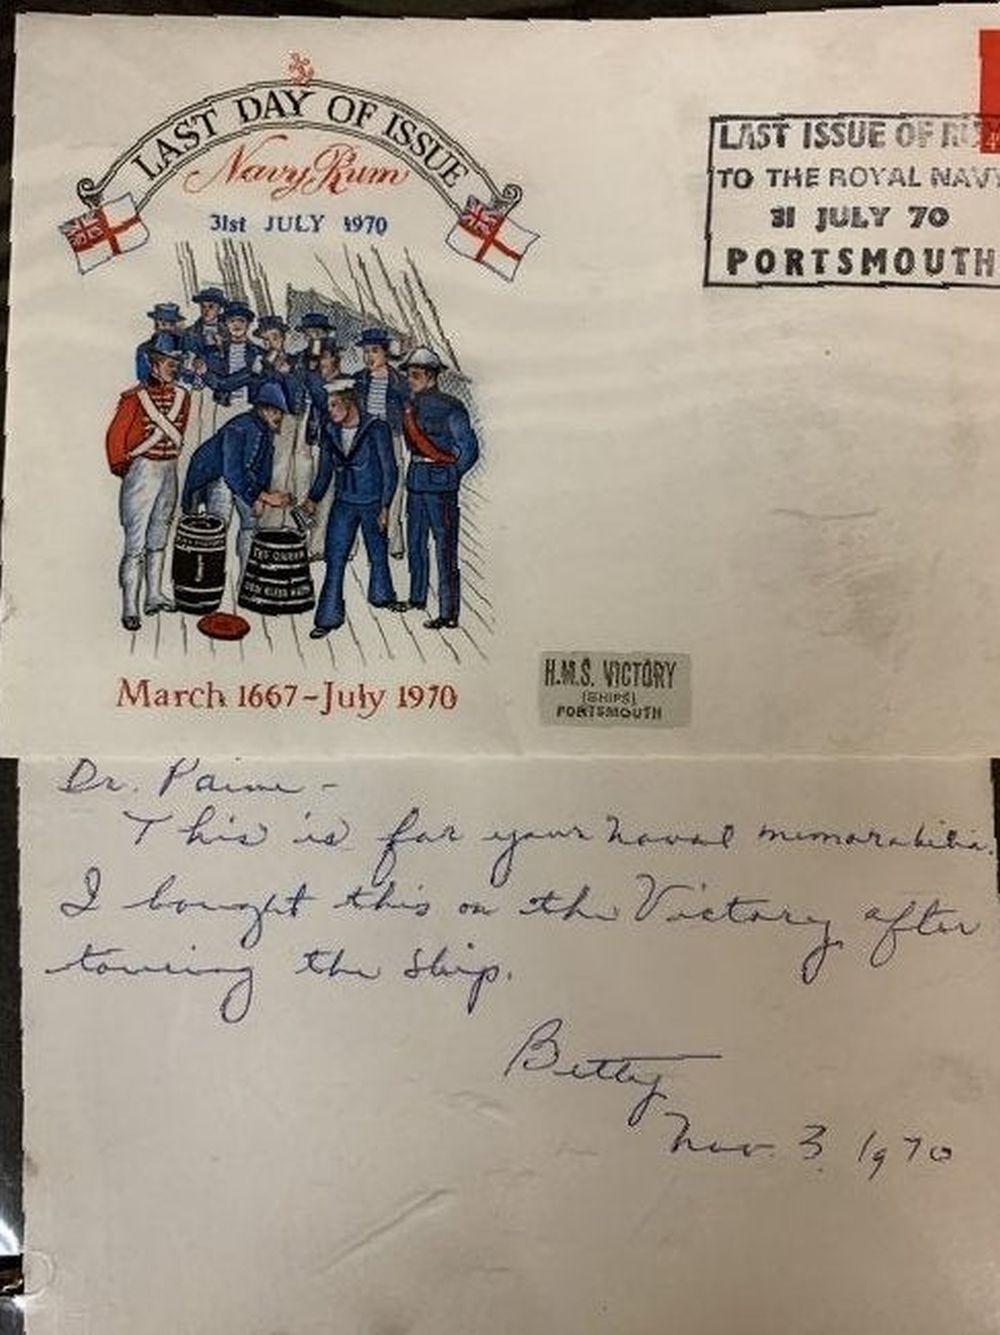 LAST DAY OF ISSUE
Navy Rum
31st JULY 1970
LAST ISSUE OF
TO THE ROYAL NAVY
31 JULY 70
PORTSMOUTH
THE QUEEN
GOD BLESS HER
March 1667-July 1970
H.M.S. VICTORY
(SHIPS)
PORTSMOUTH
Dr. Paine -
This is for your naval memorabilia.
I bought this on the Victory after
touring the ship.
Betty
Nov. 3, 1970